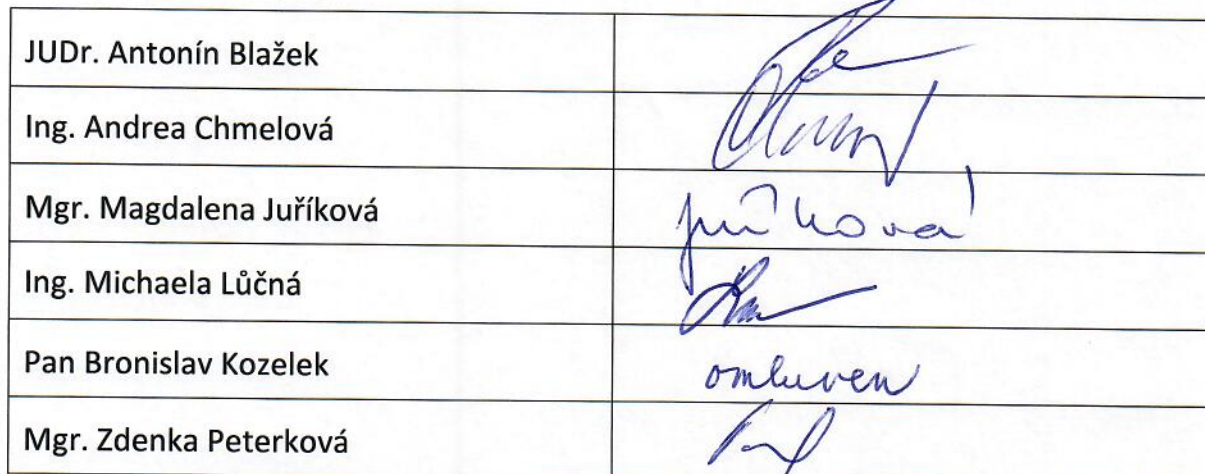 JUDr. Antonín Blažek
Ing. Andrea Chmelová
Mgr. Magdalena Juříková
Juříková
Ing. Michaela Lůčná
Pan Bronislav Kozelek
omluven
Mgr. Zdenka Peterková